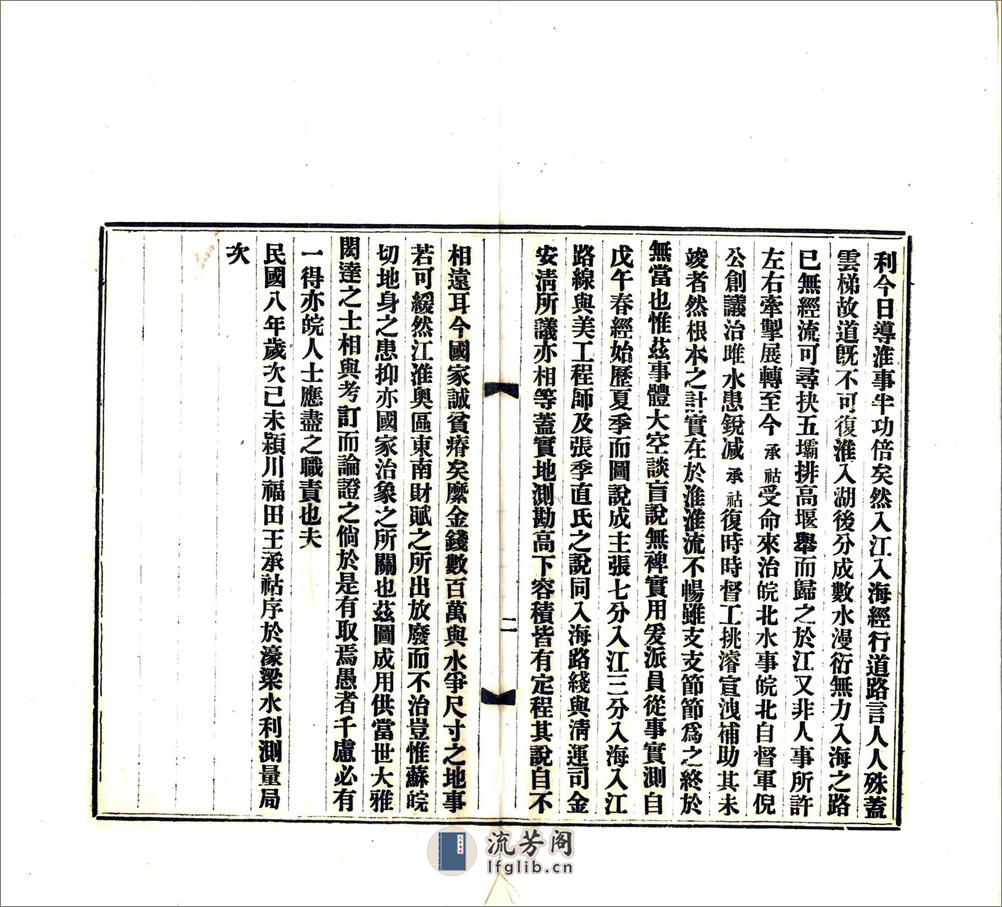 利今日導淮事半功倍矣然入江入海經行道路言人人殊蓋
雲梯故道旣不可復淮入湖後分成數水漫衍無力入海之路
已無經流可尋抉五壩排高堰舉而歸之於江又非人事所許
左右牽掣展轉至今承祜受命來治皖北水事皖北自督軍倪
公創議治雎水患銳减承祜復時時督工挑濬宣洩補助其未
竣者然根本之計實在於淮淮流不暢雖支支節節爲之終於
無當也惟茲事體大空談盲說無裨實用爰派員從事實測自
戊午春經始歷夏季而圖說成主張七分入江三分入海入江
路線與美工程師及張季直氏之說同入海路綫與淸運司金
安淸所議亦相等蓋實地測勘高下容積皆有定程其說自不
二
相遠耳今國家誠貧瘠矣縻金錢數百萬與水爭尺寸之地事
若可緩然江淮奧區東南財賦之所出放廢而不治豈惟蘇皖
切地身之患抑亦國家治象之所關也茲圖成用供當世大雅
閎達之士相與考訂而論證之倘於是有取焉愚者千慮必有
一得亦皖人士應盡之職責也夫
民國八年歲次己未潁川福田王承祜序於濠梁水利測量局
次
流芳阁
lfglib.cn